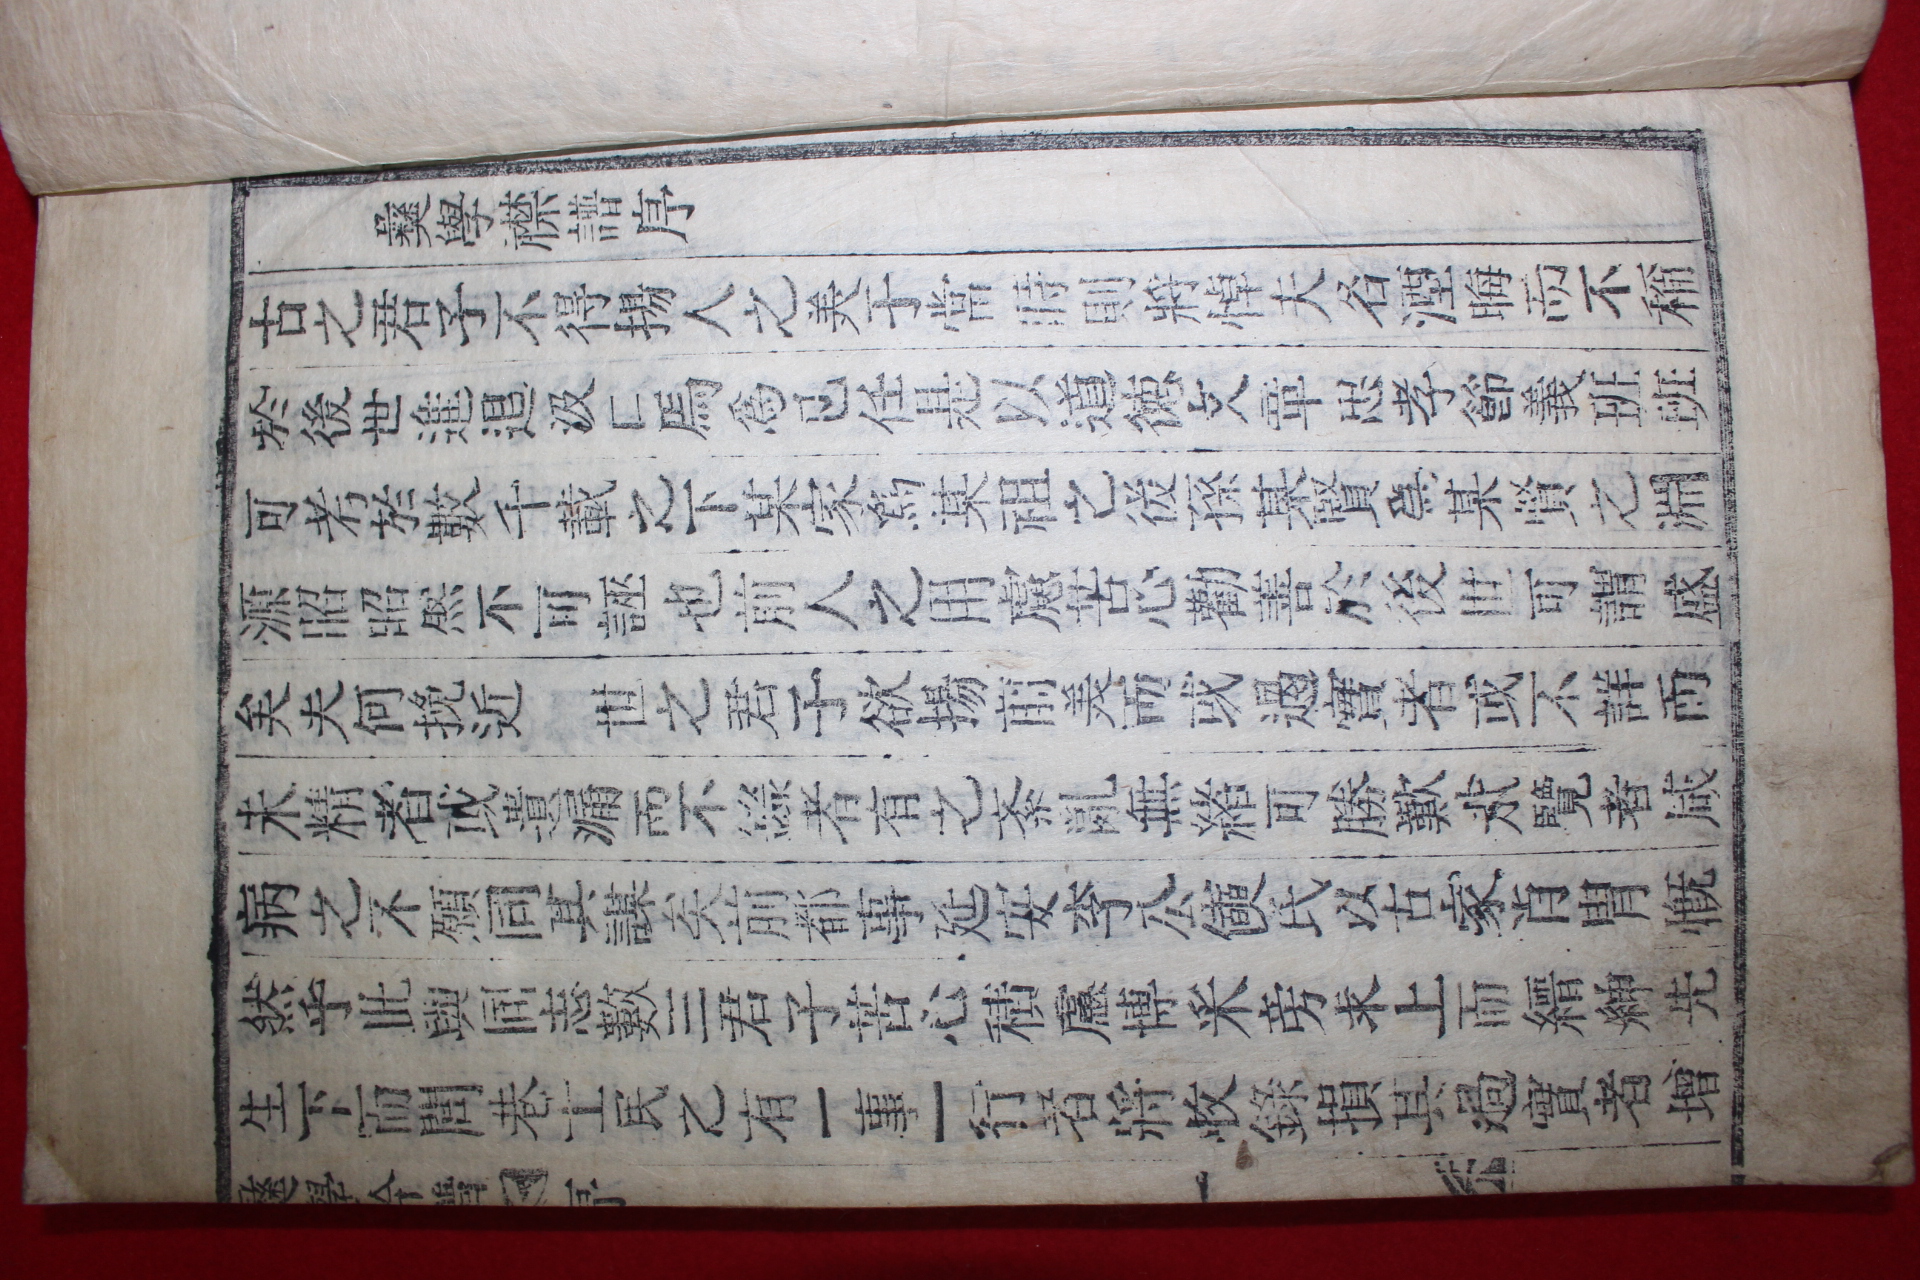 彝學襟譜序
古之君子不得揚人之美于當時則將悼夫名湮晦而不稱
於後世進退汲仁焉爲已任是以道德文章忠孝節義班班
可考於數千載之下某家爲某祖之後孫某賢爲某賢之淵
源昭昭然不可誣也前人之用慮苦心勸善於後世可謂盛
矣夫何挽近世之君子欲揚前美而或過實者或不詳而
未精者或遺漏而不錄者有之紊亂無緖可勝歎哉覽者咸
病之不願同其譜矣前都事延安李公氏以古家肖胄慨
然乎此與同志數三君子苦心積慮博采旁求上而縉紳先
生下而閭巷士民之有一事一行者將收錄損其過實者增